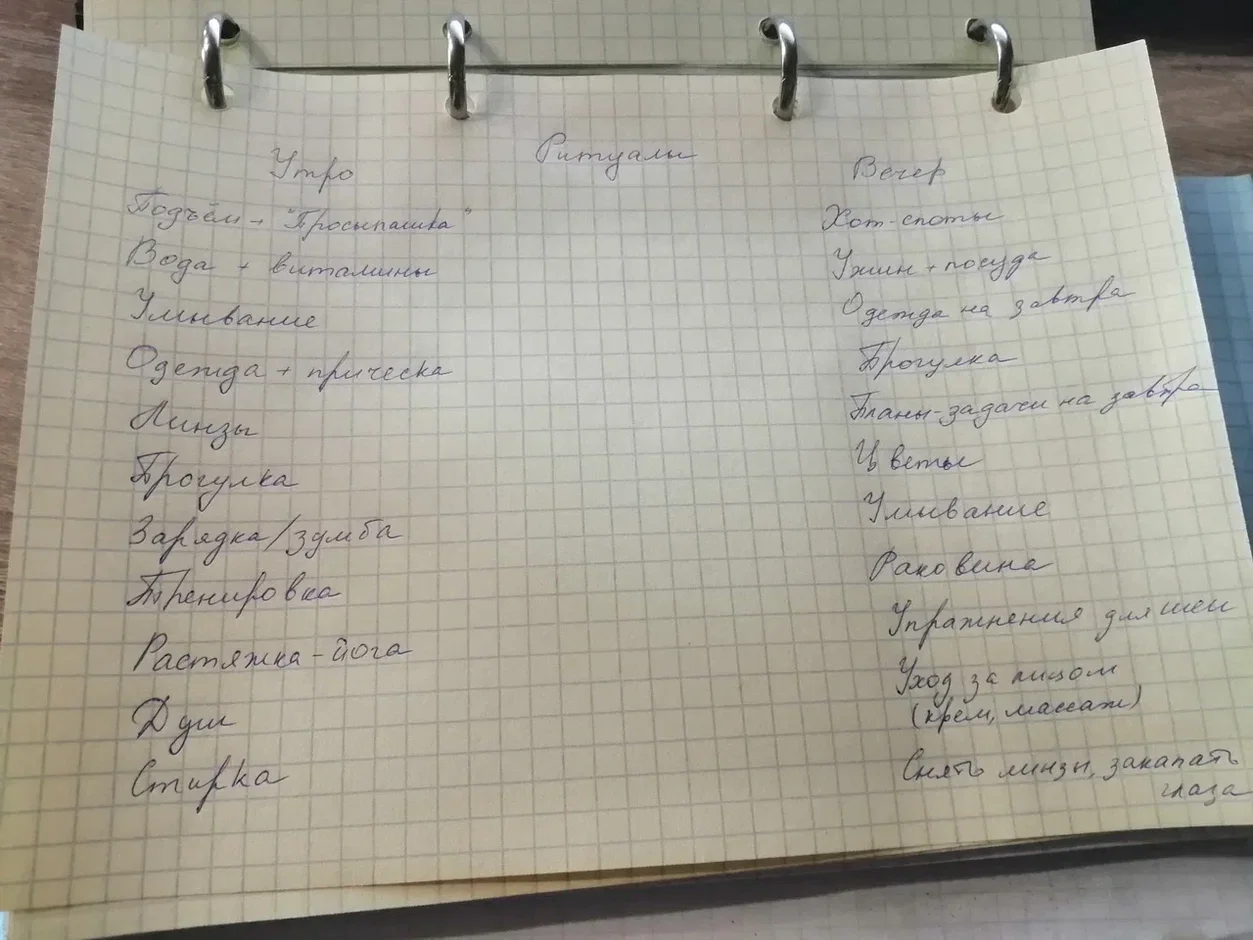 Ритуалы
Утро
Подъём → "Просыпашка"
Вода + витамины
Умывание
Одежда + прическа
Линзы
Прогулка
Зарядка/зумба
Тренировка
Растяжка-йога
Душ
Стирка
Вечер
Хот-споты
Ужин + посуда
Одежда на завтра
Прогулка
Планы-задачи на завтра
Цветы
Умывание
Раковина
Упражнения для шеи
Уход за лицом
(крем, массаж)
Снять линзы, закапать
глаза